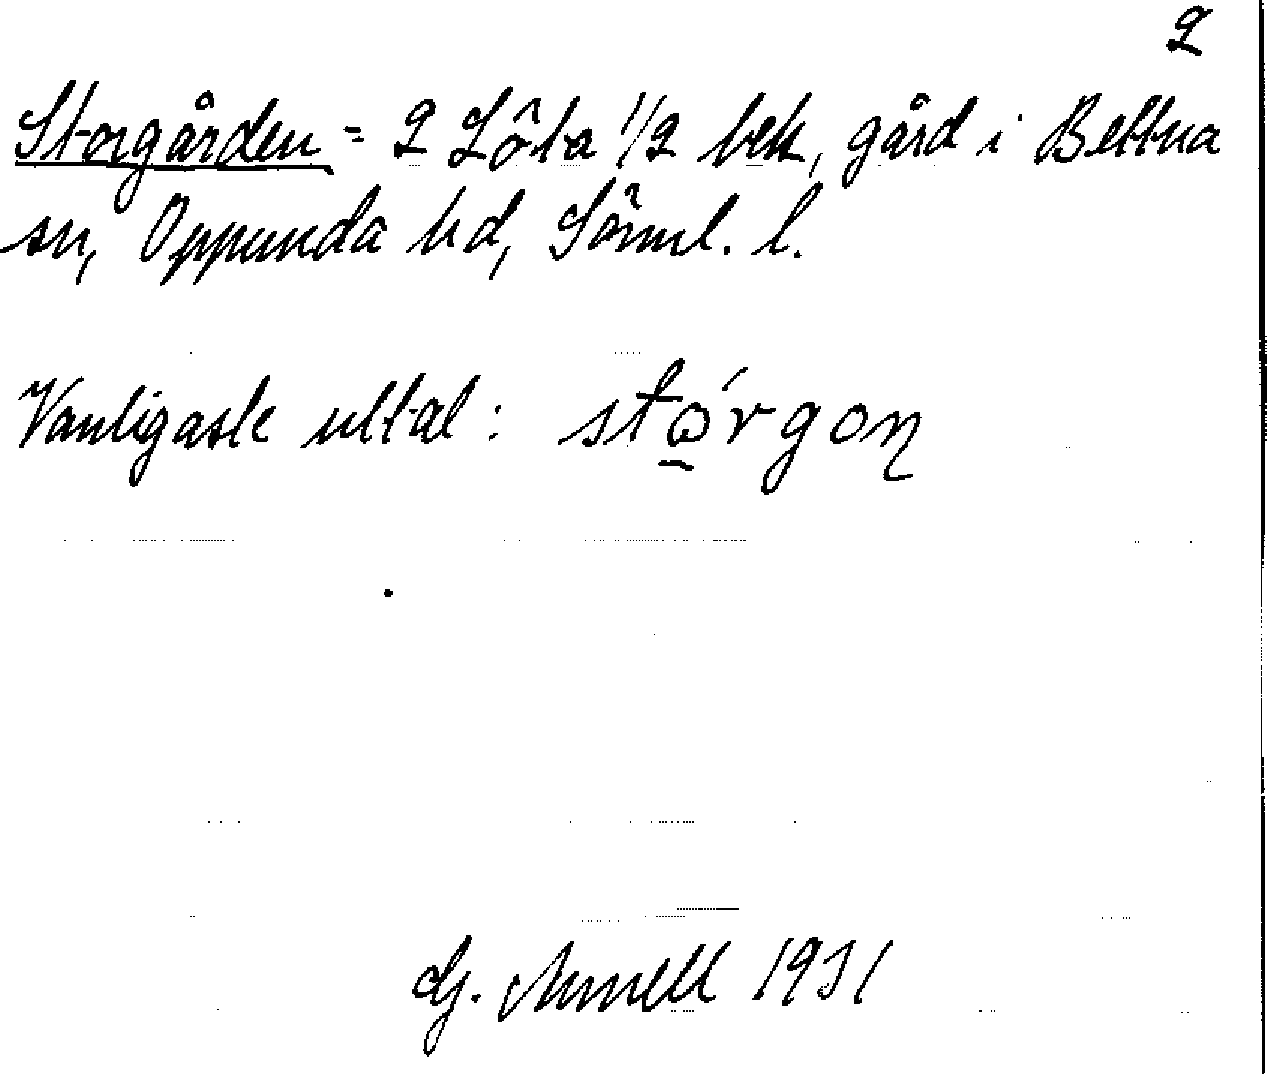 2
Storgården = 2 Löta 1/2 bek, gård i Bettna
sn, Oppunda hd, Sörml. l.
Vanligaste uttal: stǫ́rgoṇ
Hj. Annell 1931